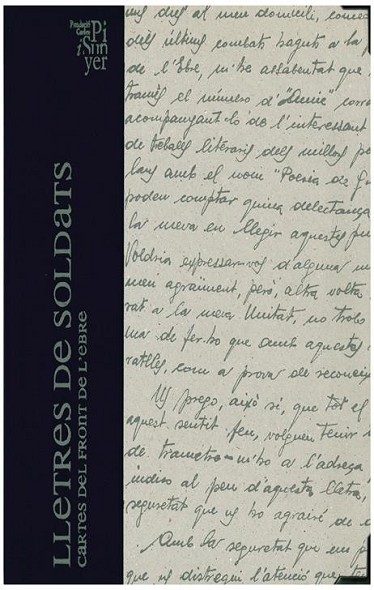 Fundació
Carles
Pi
i Sun
yer
LLETRES DE SOLDATS
CARTES DEL FRONT DE L'EBRE
uns dies al meu domicili, conced
dels últims combats haguts a la
de l'Ebre, m'he assabentat que
tramés el número d'"Amic" corre
acompanyant-lo de l'interessant
de treballs literaris dels millors po
lans amb el nom "Poesia de Gu
poden comptar quina delectança
la meva en llegir aquestes
Voldria expressar-vos d'alguna m
meu agraïment, però, altra volta
rat a la meva Unitat, no trobo
ma de fer-ho que amb aquestes
ratlles, com a prova de reconeix
Us prego, això sí, que tot el
aquest sentit feu, volgueu tenir
de trametre-m'ho a l'adreça
indico al peu d'aquesta lletra,
seguretat que us ho agrairé de
Amb la seguretat que em
que us distregui l'atenció que